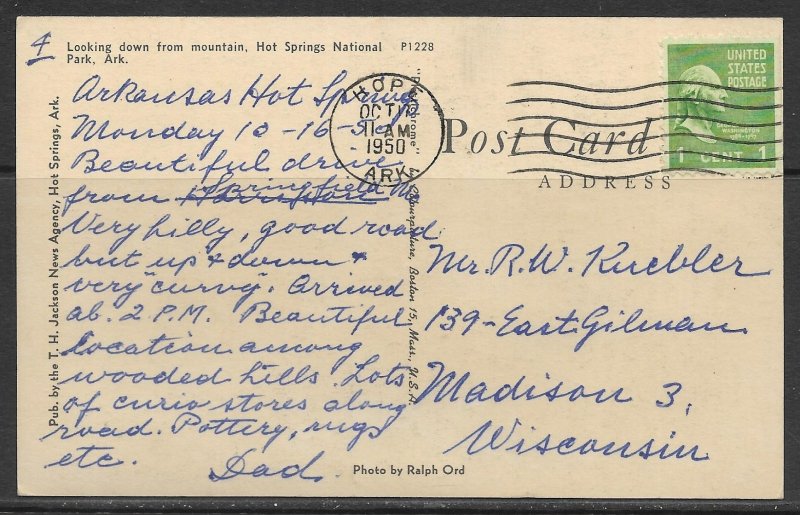 4
Looking down from mountain, Hot Springs National P1228
Park, Ark.
Arkansas Hot Springs
Monday 10-16-50
Beautiful drive
from Harrison Springfield Mo
Very hilly, good road
but up & down &
very "curvy". Arrived
ab. 2 P.M. Beautiful
location among
wooded hills. Lots
of curio stores along
road. Pottery, rugs
etc.
Dad.
Pub. by the T. H. Jackson News Agency, Hot Springs, Ark.
by Colourpicture, Boston 15, Mass., U.S.A.
HOPE
OCT 17
11 AM
1950
ARK.
Post Card
ADDRESS
UNITED
STATES
POSTAGE
WASHINGTON
1 CENT 1
Mr. R.W. Kuebler
139-East Gilman
Madison 3,
Wisconsin
Photo by Ralph Ord